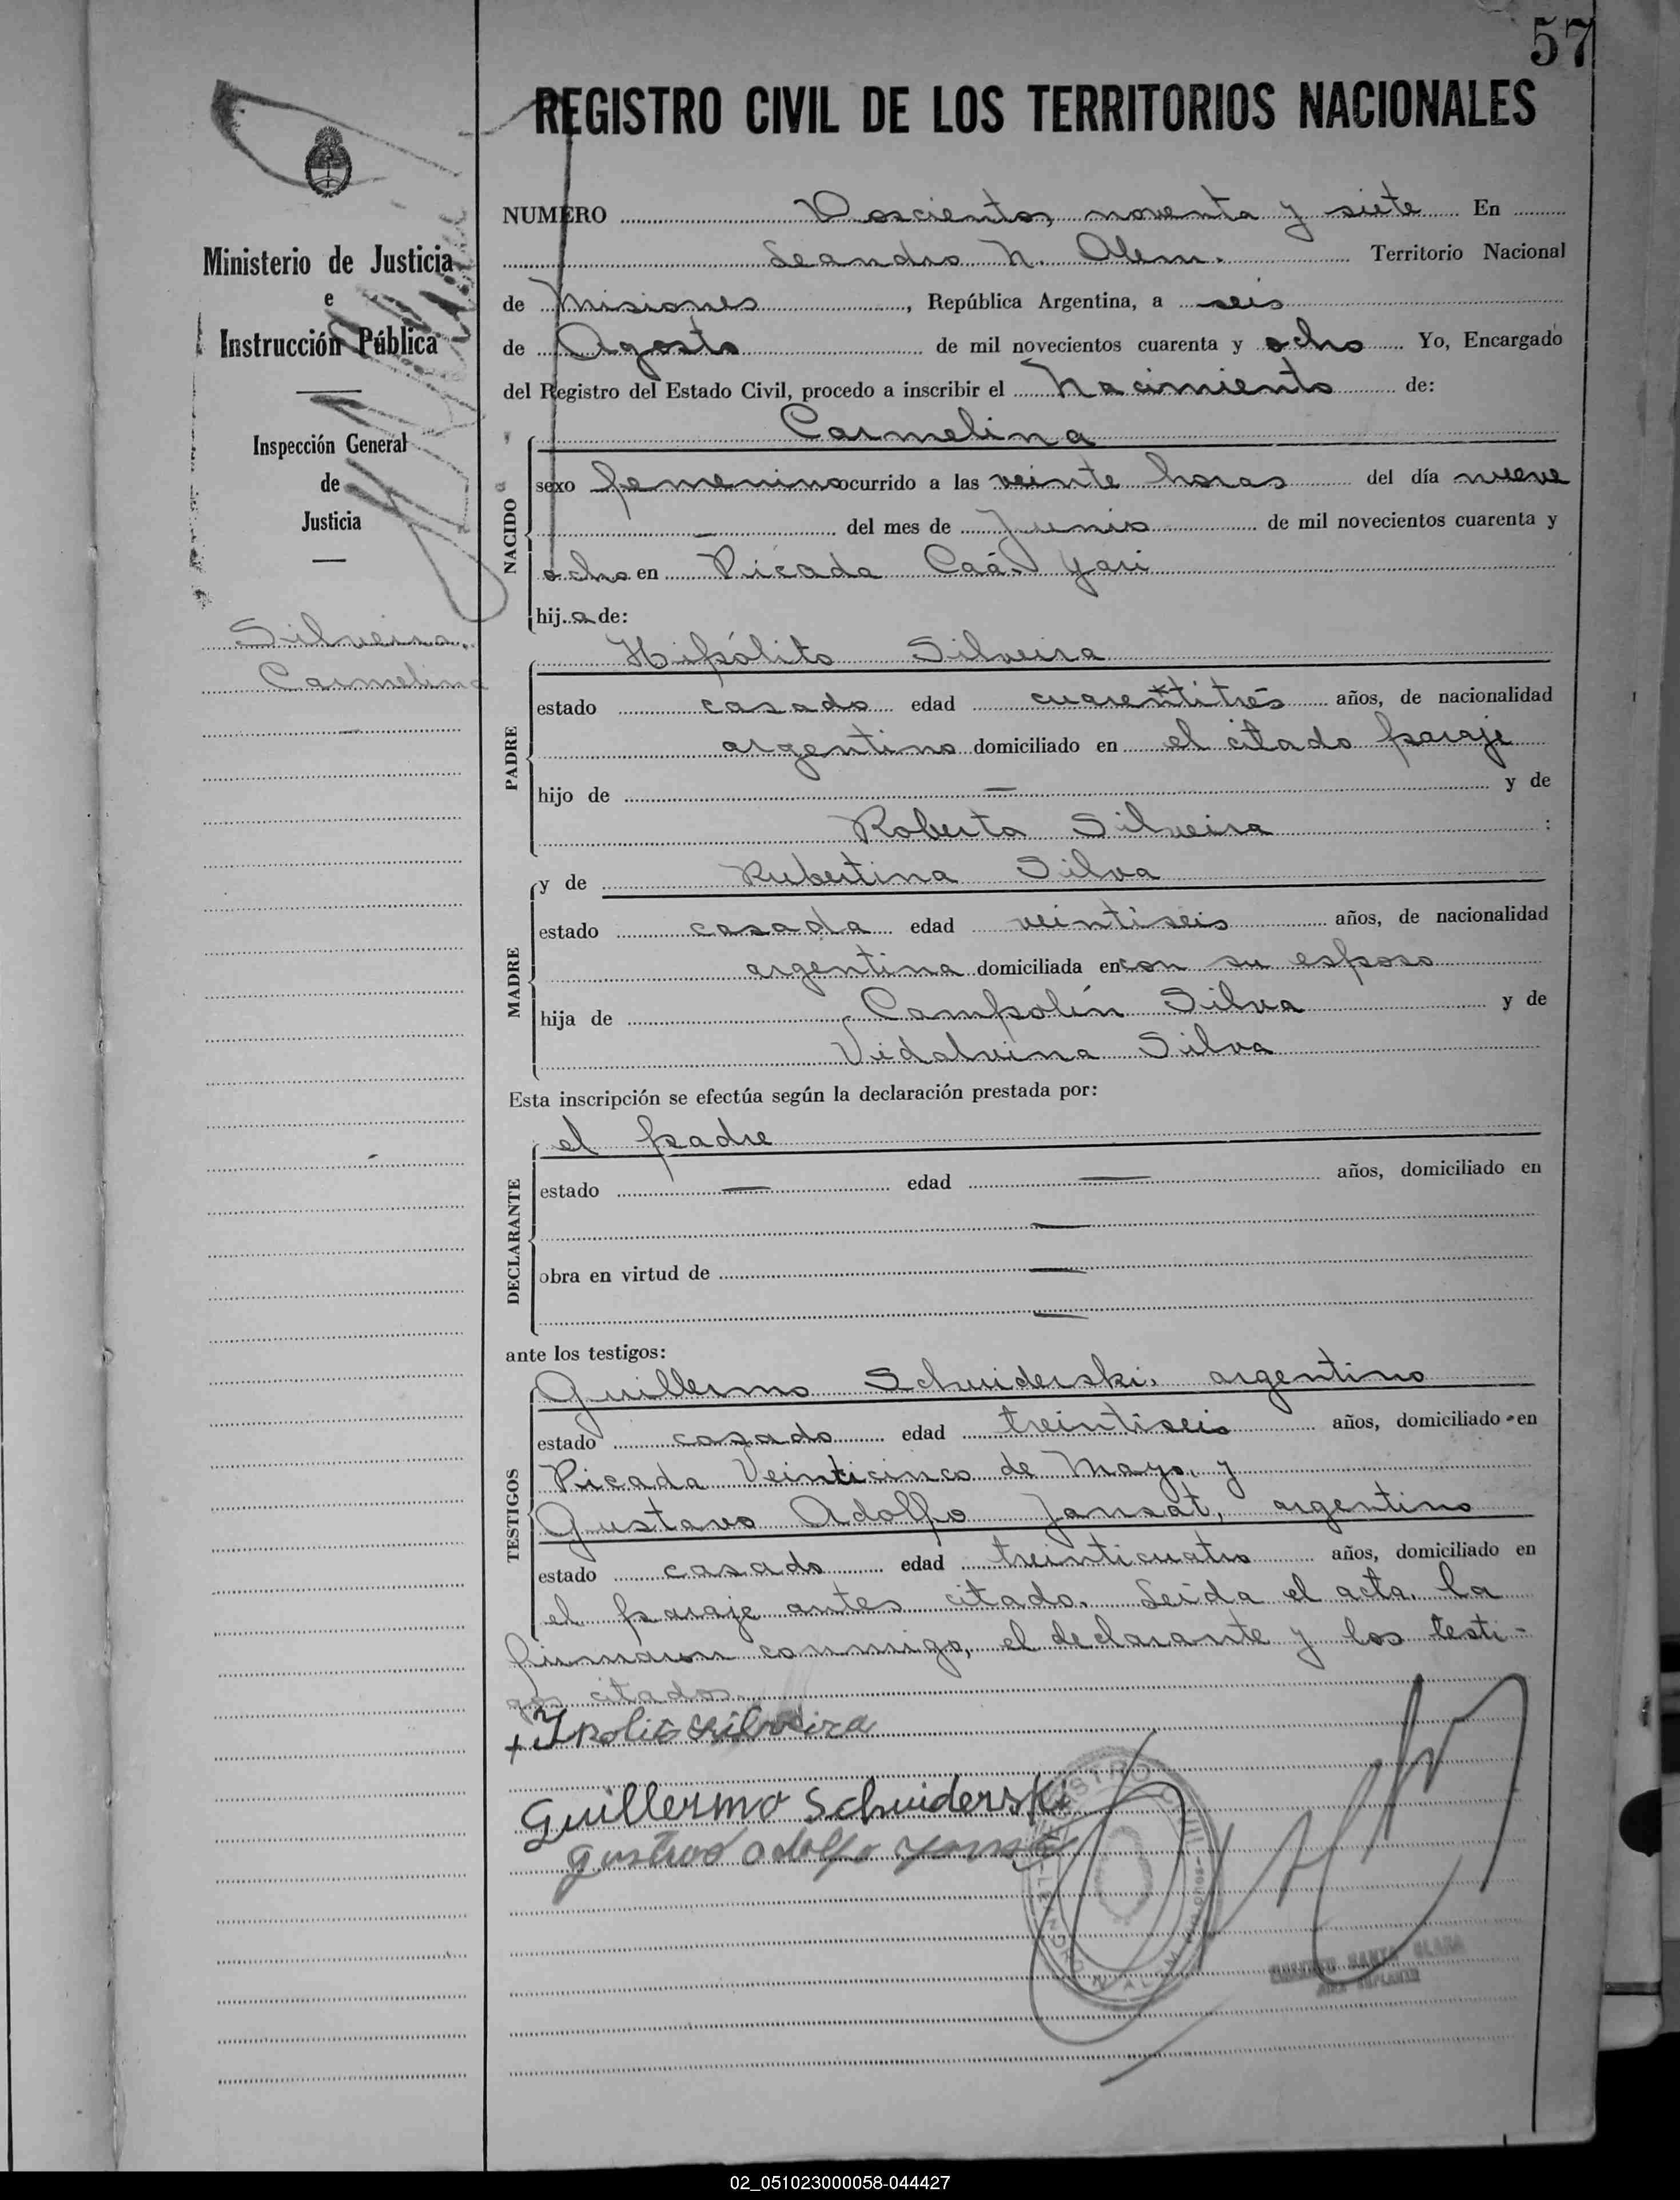 57
REGISTRO CIVIL DE LOS TERRITORIOS NACIONALES
Ministerio de Justicia
e
Instrucción Pública
Inspección General
de
Justicia
Silveira,
Carmelina
NUMERO Doscientos noventa y siete En
Leandro N. Alem. Territorio Nacional
de Misiones, República Argentina, a seis
de Agosto de mil novecientos cuarenta y ocho Yo, Encargado
del Registro del Estado Civil, procedo a inscribir el Nacimiento de:
Carmelina
NACIDO
sexo femenino ocurrido a las veinte horas del día nueve
— del mes de Junio de mil novecientos cuarenta y
ocho en Picada Caá-Yarí
hija de:
PADRE
Hipólito Silveira
estado casado edad cuarentitrés años, de nacionalidad
argentino domiciliado en el citado paraje
hijo de — y de
Roberta Silveira :
MADRE
y de Rubertina Silva
estado casada edad veintiseis años, de nacionalidad
argentina domiciliada en con su esposo
hija de Campolín Silva y de
Vidalvina Silva
Esta inscripción se efectúa según la declaración prestada por:
DECLARANTE
el padre
estado — edad — años, domiciliado en
—
obra en virtud de —
—
ante los testigos:
TESTIGOS
Guillermo Schuiderski, argentino
estado casado edad treintiseis años, domiciliado en
Picada Veinticinco de Mayo, y
Gustavo Adolfo Jansat, argentino
estado casado edad treinticuatro años, domiciliado en
el paraje antes citado. Leida el acta, la
firmaron conmigo, el declarante y los testi-
gos citados.
Silveira
Guillermo Schuiderski
Gustavo Adolfo
REGISTRO CIVIL
SANTA CLARA
JUEZ SUPLENTE
02_051023000058-044427